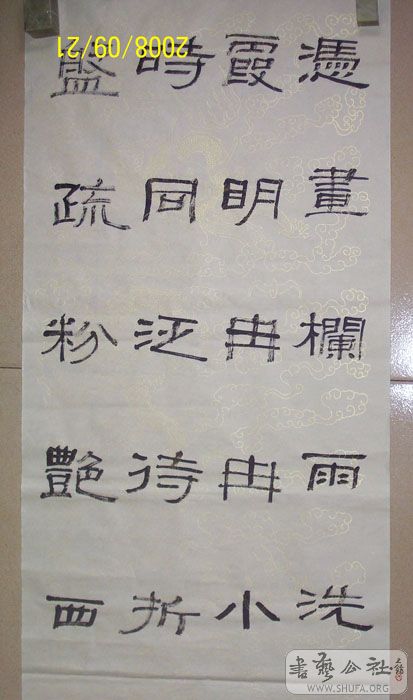 憑畫欄雨洗
霞明冉冉小
時同泛待折
盤疏粉艷西
2008/09/21
書藝公社
WWW.SHUFA.ORG